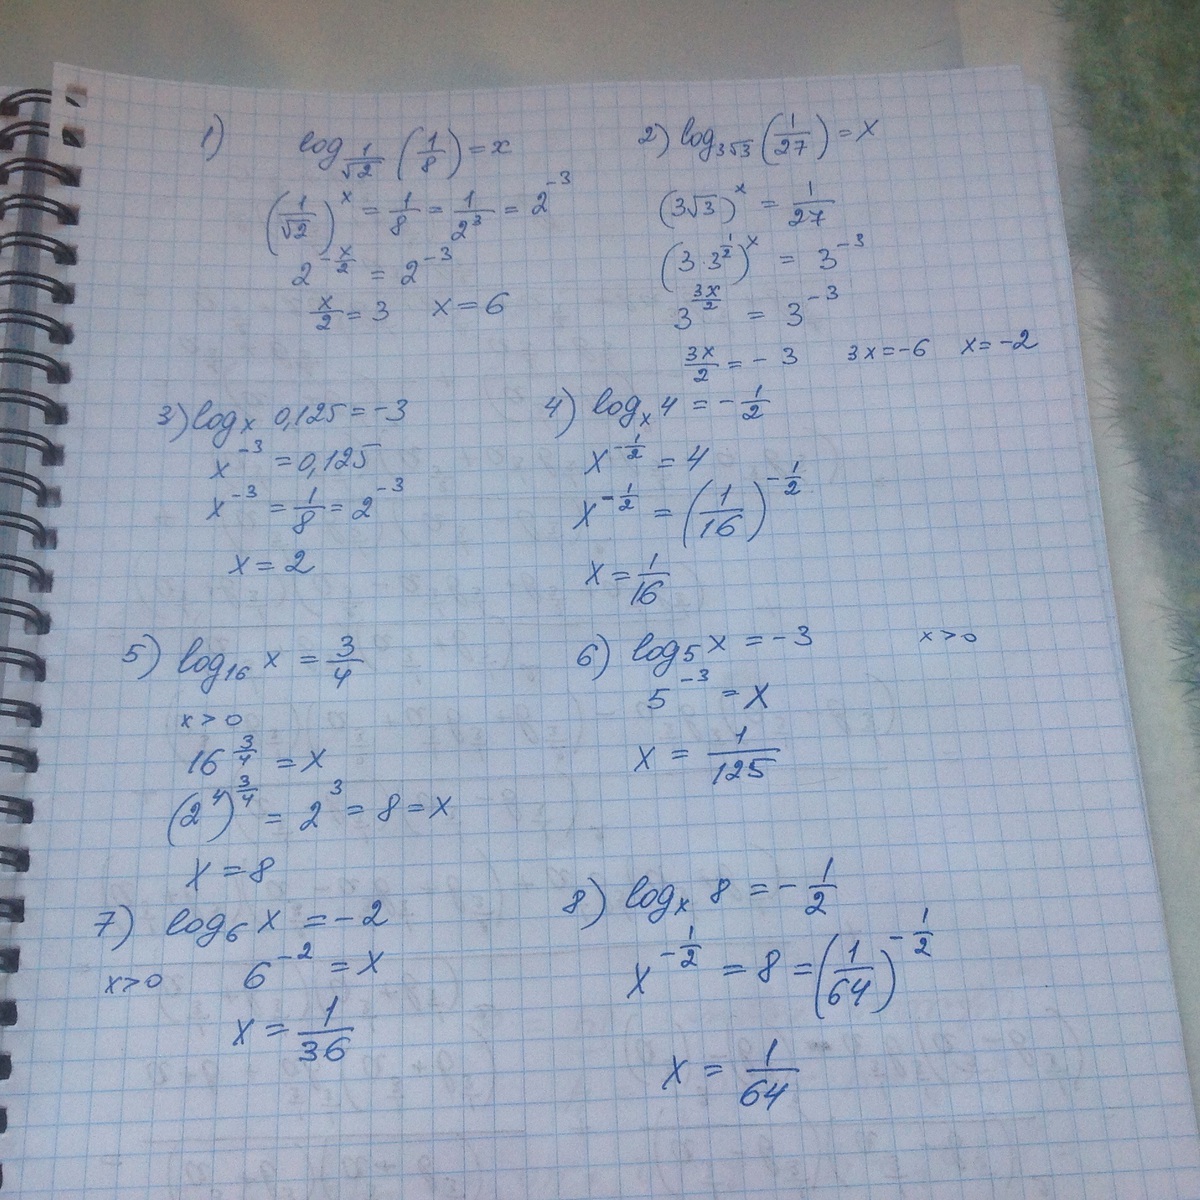 1) log_{1/√2} (1/8) = x
(1/√2)^x = 1/8 = 1/2^3 = 2^{-3}
2^{-x/2} = 2^{-3}
x/2 = 3 x = 6
2) log_{3√3} (1/27) = x
(3√3)^x = 1/27
(3·3^{1/2})^x = 3^{-3}
3^{3x/2} = 3^{-3}
3x/2 = -3 3x = -6 x = -2
3) log_x 0,125 = -3
x^{-3} = 0,125
x^{-3} = 1/8 = 2^{-3}
x = 2
4) log_x 4 = -1/2
x^{-1/2} = 4
x^{-1/2} = (1/16)^{-1/2}
x = 1/16
5) log_{16} x = 3/4
x > 0
16^{3/4} = x
(2^4)^{3/4} = 2^3 = 8 = x
x = 8
6) log_5 x = -3 x > 0
5^{-3} = x
x = 1/125
7) log_6 x = -2
x > 0 6^{-2} = x
x = 1/36
8) log_x 8 = -1/2
x^{-1/2} = 8 = (1/64)^{-1/2}
x = 1/64